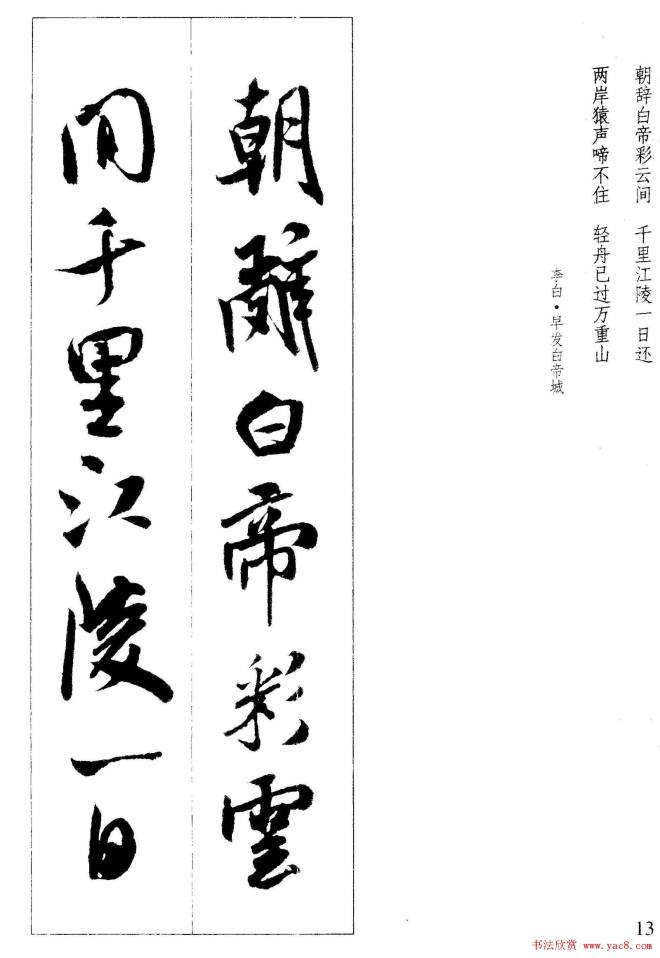 朝辞白帝彩云间 千里江陵一日还
两岸猿声啼不住 轻舟已过万重山
李白·早发白帝城
朝辭白帝彩雲
間千里江陵一日
13
书法欣赏 www.yac8.com